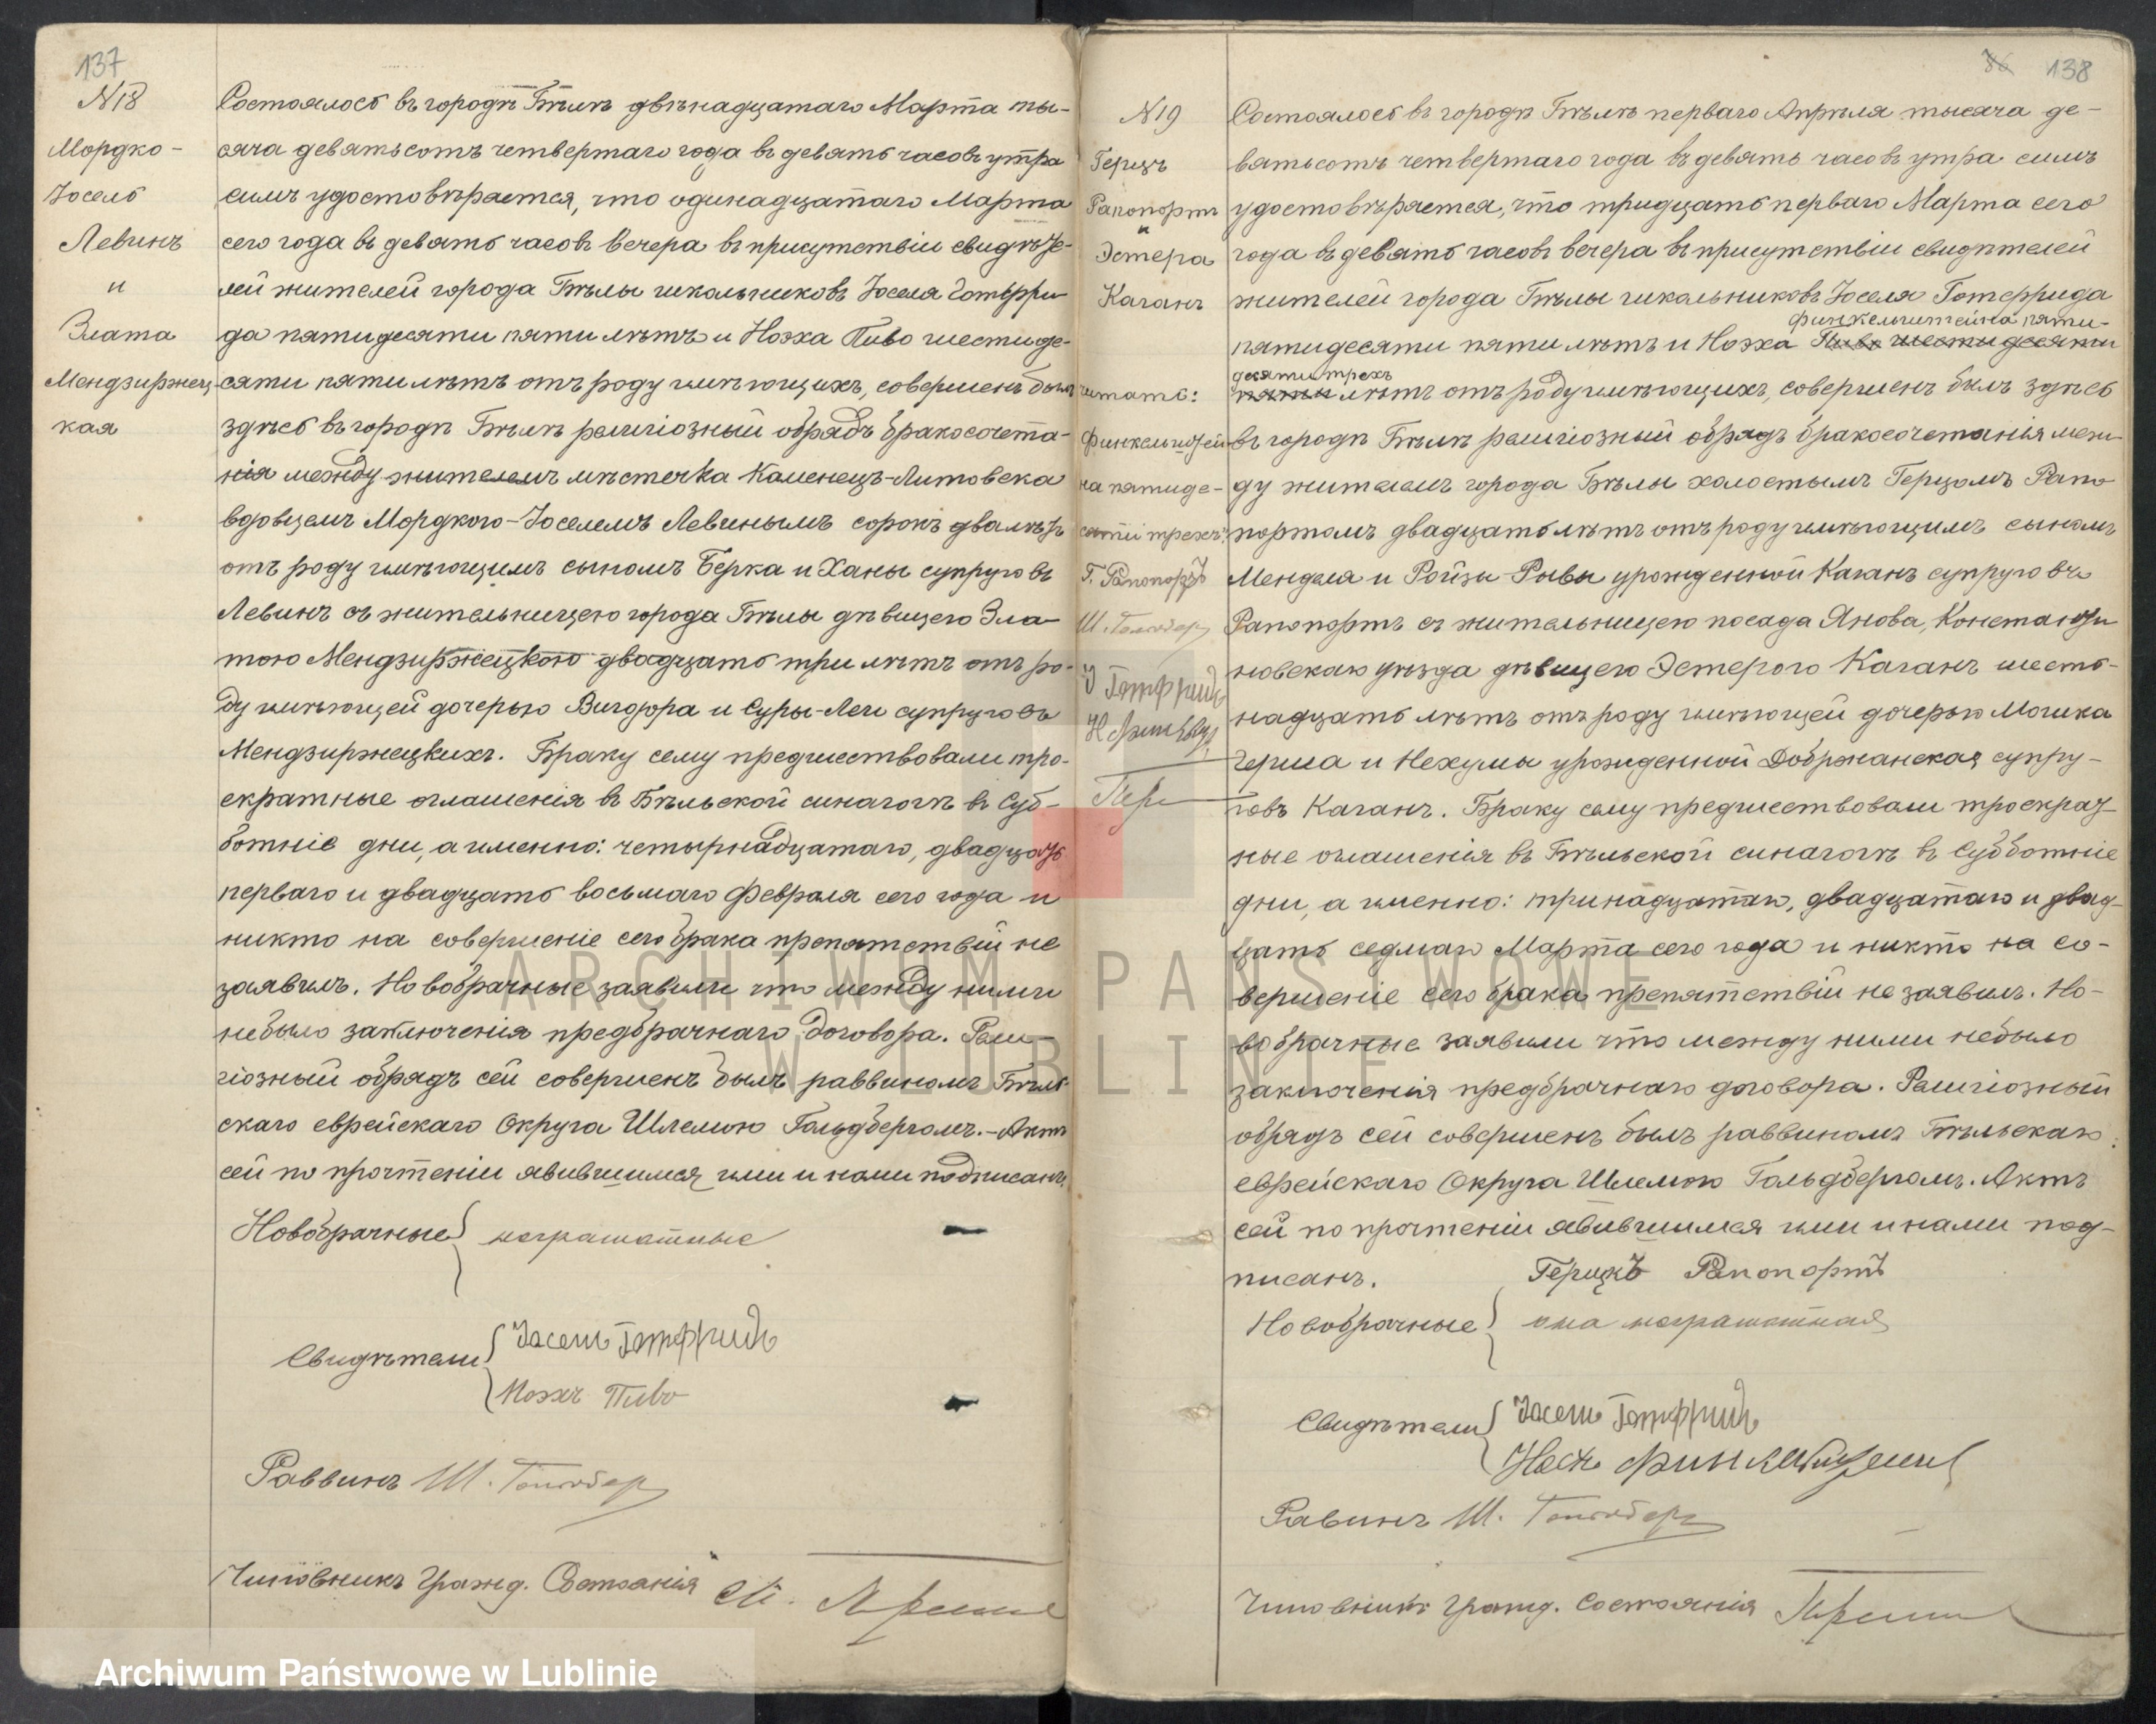 137
N18
Мордко-
Іосель
Левинъ
и
Злата
Мендзиржец-
кая
Состоялось въ городѣ Бѣлѣ двѣнадцатаго Марта ты-
сяча девятьсотъ четвертаго года въ девять часовъ утра
симъ удостовѣрается, что одинадцатаго Марта
сего года въ девять часовъ вечера въ присутствіи свидѣте-
лей жителей города Бѣлы школьниковъ Іоселя Готфри-
да пятидесяти пяти лѣтъ и Ноэха Пиво шестиде-
сяти пяти лѣтъ отъ роду имѣющихъ, совершенъ былъ
здѣсь въ городѣ Бѣлѣ религіозный обрядъ бракосочета-
нія между жителемъ мѣстечка Каменецъ-Литовска
вдовцемъ Мордкою-Іоселемъ Левинымъ сорокъ два лѣтъ
отъ роду имѣющимъ сыномъ Берка и Ханы супруговъ
Левинъ съ жительницею города Бѣлы дѣвицею Зла-
тою Мендзиржецкою двадцать три лѣтъ отъ ро-
ду имѣющей дочерью Вигдора и Суры-Леи супруговъ
Мендзиржецкихъ. Браку сему предшествовали тро-
екратные оглашенія въ Бѣльской синагогѣ въ Суб-
ботніе дни, а именно: четырнадцатаго, двадцать
перваго и двадцать восьмаго Февраля сего года и
никто на совершеніе сего брака препятствій не
заявилъ. Новобрачные заявили что между ними
небыло заключенія предбрачнаго договора. Рели-
гіозный обрядъ сей совершенъ былъ раввиномъ Бѣль-
скаго еврейскаго Округа Шлемою Гольдбергомъ.-Актъ
сей по прочтеніи явившимся ими и нами подписанъ.
Новобрачные } неграмотные
Свидѣтели { Іосель Готфридъ
Ноэхъ Пиво
Раввинъ Ш. Гольдберг
Чиновникъ Гражд. Состоянія
86 138
N19
Герцъ
Рапопортъ
и
Эстера
Каганъ
читать:
Финкельштей-
на пятиде-
сяти трехъ.
Г. Рапопортъ
Ш. Гольдберг
І Готфридъ
Состоялось въ городѣ Бѣлѣ перваго Апрѣля тысяча де-
вятьсотъ четвертаго года въ девять часовъ утра симъ
удостовѣряется, что тридцать перваго Марта сего
года въ девять часовъ вечера въ присутствіи свидѣтелей
жителей города Бѣлы школьниковъ Іоселя Готеррида
Финкельштейна пяти-
пятидесяти пяти лѣтъ и Ноэха Пиво шестидесяти
десяти трехъ
пяти лѣтъ отъ роду имѣющихъ, совершенъ былъ здѣсь
въ городѣ Бѣлѣ религіозный обрядъ бракосочетанія меж-
ду жителемъ города Бѣлы холостымъ Герцомъ Рапо-
портомъ двадцать лѣтъ отъ роду имѣющимъ сыномъ
Менделя и Ройзы-Ривы урожденной Каганъ супруговъ
Рапопортъ съ жительницею посада Янова, Константи-
новскаго уѣзда дѣвицею Эстерою Каганъ шест-
надцать лѣтъ отъ роду имѣющей дочерью Мошка
Герша и Нехумы урожденной Добржанская супру-
говъ Каганъ. Браку сему предшествовали троекрат-
ные оглашенія въ Бѣльской синагогѣ въ Субботніе
дни, а именно: тринадцатаго, двадцатаго и двад-
цать седмаго Марта сего года и никто на со-
вершеніе сего брака препятствій не заявилъ. Но-
вобрачные заявили что между ними небыло
заключенія предбрачнаго договора. Религіозный
обрядъ сей совершенъ былъ раввиномъ Бѣльскаго
еврейскаго Округа Шлемою Гольдбергомъ. Актъ
сей по прочтеніи явившимся ими и нами под-
писанъ. Герцъ Рапопортъ
Новобрачные } она неграмотная
Свидѣтели { Іосель Готфридъ
Раввинъ Ш. Гольдберг
Чиновникъ Гражд. Состоянія
ARCHIWUM PAŃSTWOWE
W LUBLINIE
Archiwum Państwowe w Lublinie